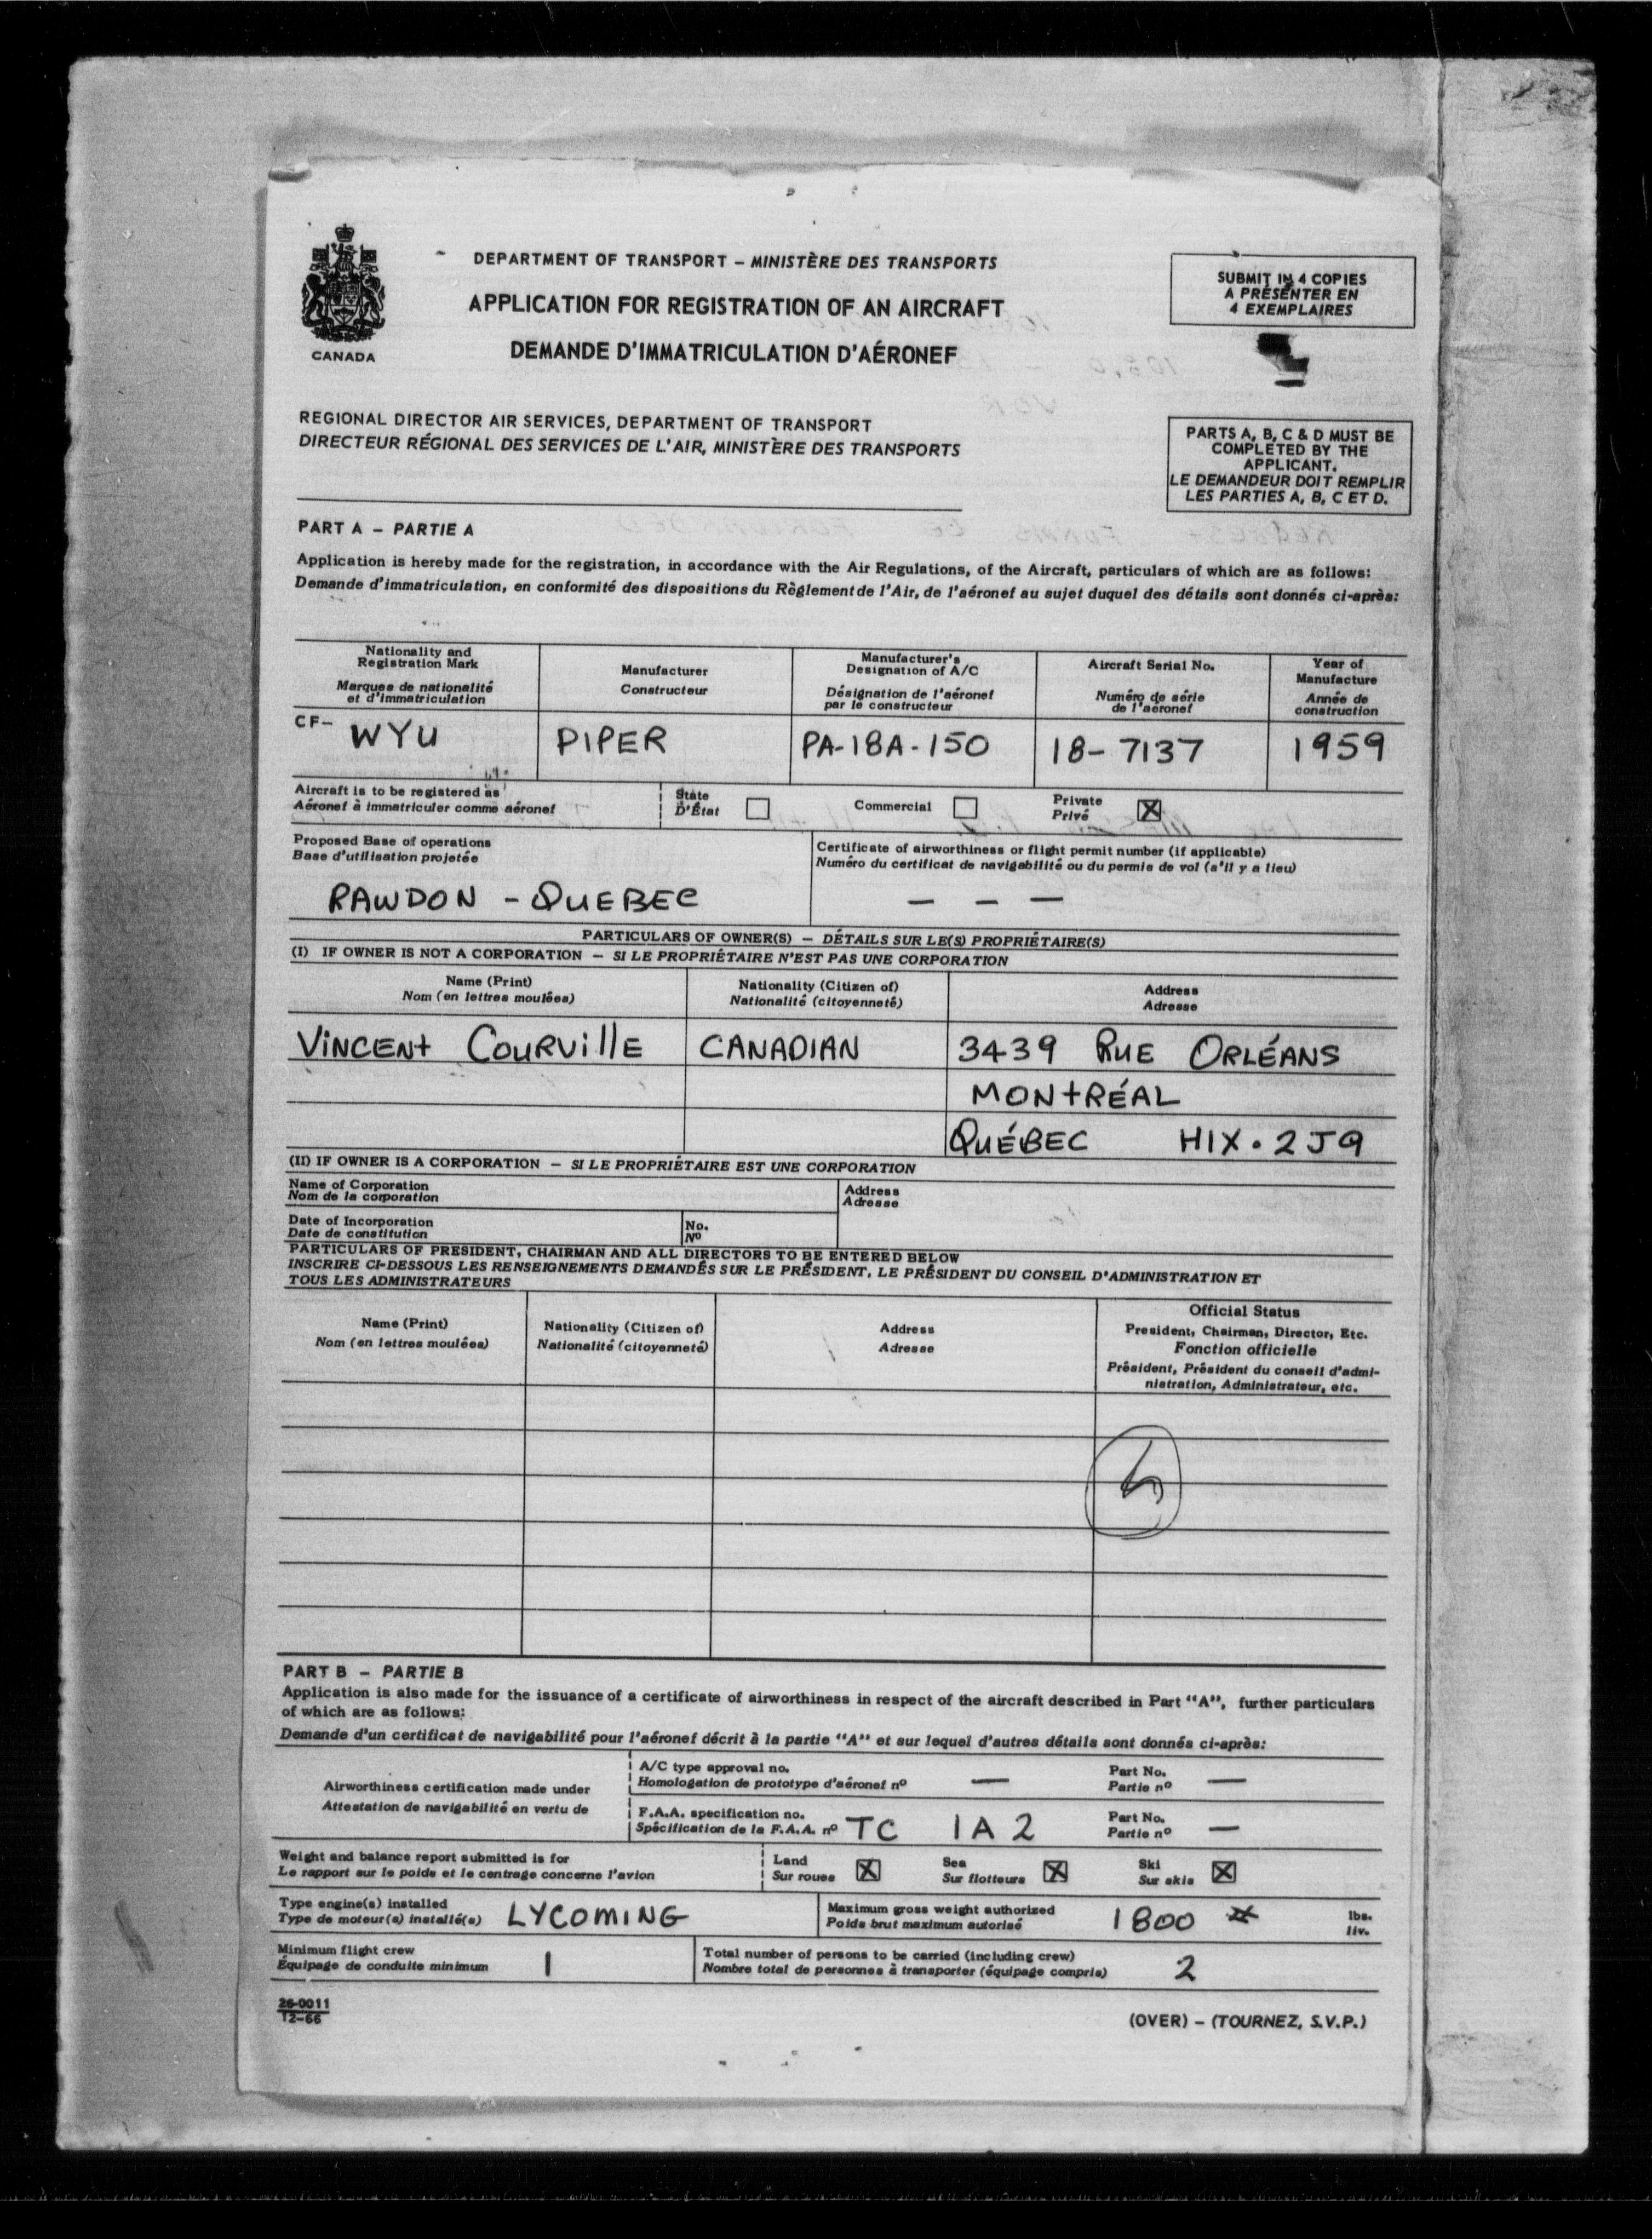 DEPARTMENT OF TRANSPORT – MINISTÈRE DES TRANSPORTS
APPLICATION FOR REGISTRATION OF AN AIRCRAFT
DEMANDE D'IMMATRICULATION D'AÉRONEF
CANADA
SUBMIT IN 4 COPIES
A PRÉSENTER EN
4 EXEMPLAIRES
REGIONAL DIRECTOR AIR SERVICES, DEPARTMENT OF TRANSPORT
DIRECTEUR RÉGIONAL DES SERVICES DE L'AIR, MINISTÈRE DES TRANSPORTS
PARTS A, B, C & D MUST BE
COMPLETED BY THE
APPLICANT.
LE DEMANDEUR DOIT REMPLIR
LES PARTIES A, B, C ET D.
PART A – PARTIE A
Application is hereby made for the registration, in accordance with the Air Regulations, of the Aircraft, particulars of which are as follows:
Demande d'immatriculation, en conformité des dispositions du Règlement de l'Air, de l'aéronef au sujet duquel des détails sont donnés ci-après:
Nationality and
Registration Mark
Marques de nationalité
et d'immatriculation
Manufacturer
Constructeur
Manufacturer's
Designation of A/C
Désignation de l'aéronef
par le constructeur
Aircraft Serial No.
Numéro de série
de l'aéronef
Year of
Manufacture
Année de
construction
CF– WYU PIPER PA-18A-150 18-7137 1959
Aircraft is to be registered as
Aéronef à immatriculer comme aéronef
State
D'État
Commercial
Private
Privé
X
Proposed Base of operations
Base d'utilisation projetée
RAWDON - QUEBEC
Certificate of airworthiness or flight permit number (if applicable)
Numéro du certificat de navigabilité ou du permis de vol (s'il y a lieu)
– – –
PARTICULARS OF OWNER(S) – DÉTAILS SUR LE(S) PROPRIÉTAIRE(S)
(I) IF OWNER IS NOT A CORPORATION – SI LE PROPRIÉTAIRE N'EST PAS UNE CORPORATION
Name (Print)
Nom (en lettres moulées)
Nationality (Citizen of)
Nationalité (citoyenneté)
Address
Adresse
VINCENT COURVILLE CANADIAN 3439 RUE ORLÉANS
MONTRÉAL
QUÉBEC H1X·2J9
(II) IF OWNER IS A CORPORATION – SI LE PROPRIÉTAIRE EST UNE CORPORATION
Name of Corporation
Nom de la corporation
Address
Adresse
Date of Incorporation
Date de constitution
No.
Nº
PARTICULARS OF PRESIDENT, CHAIRMAN AND ALL DIRECTORS TO BE ENTERED BELOW
INSCRIRE CI-DESSOUS LES RENSEIGNEMENTS DEMANDÉS SUR LE PRÉSIDENT, LE PRÉSIDENT DU CONSEIL D'ADMINISTRATION ET
TOUS LES ADMINISTRATEURS
Name (Print)
Nom (en lettres moulées)
Nationality (Citizen of)
Nationalité (citoyenneté)
Address
Adresse
Official Status
President, Chairman, Director, Etc.
Fonction officielle
Président, Président du conseil d'admi-
nistration, Administrateur, etc.
PART B – PARTIE B
Application is also made for the issuance of a certificate of airworthiness in respect of the aircraft described in Part "A", further particulars
of which are as follows:
Demande d'un certificat de navigabilité pour l'aéronef décrit à la partie "A" et sur lequel d'autres détails sont donnés ci-après:
Airworthiness certification made under
Attestation de navigabilité en vertu de
A/C type approval no.
Homologation de prototype d'aéronef nº —
Part No.
Partie nº —
F.A.A. specification no.
Spécification de la F.A.A. nº TC 1A2
Part No.
Partie nº —
Weight and balance report submitted is for
Le rapport sur le poids et le centrage concerne l'avion
Land
Sur roues X
Sea
Sur flotteurs X
Ski
Sur skis X
Type engine(s) installed
Type de moteur(s) installé(s) LYCOMING
Maximum gross weight authorized
Poids brut maximum autorisé 1800 #
lbs.
liv.
Minimum flight crew
Équipage de conduite minimum 1
Total number of persons to be carried (including crew)
Nombre total de personnes à transporter (équipage compris) 2
26-0011
12-66
(OVER) – (TOURNEZ, S.V.P.)